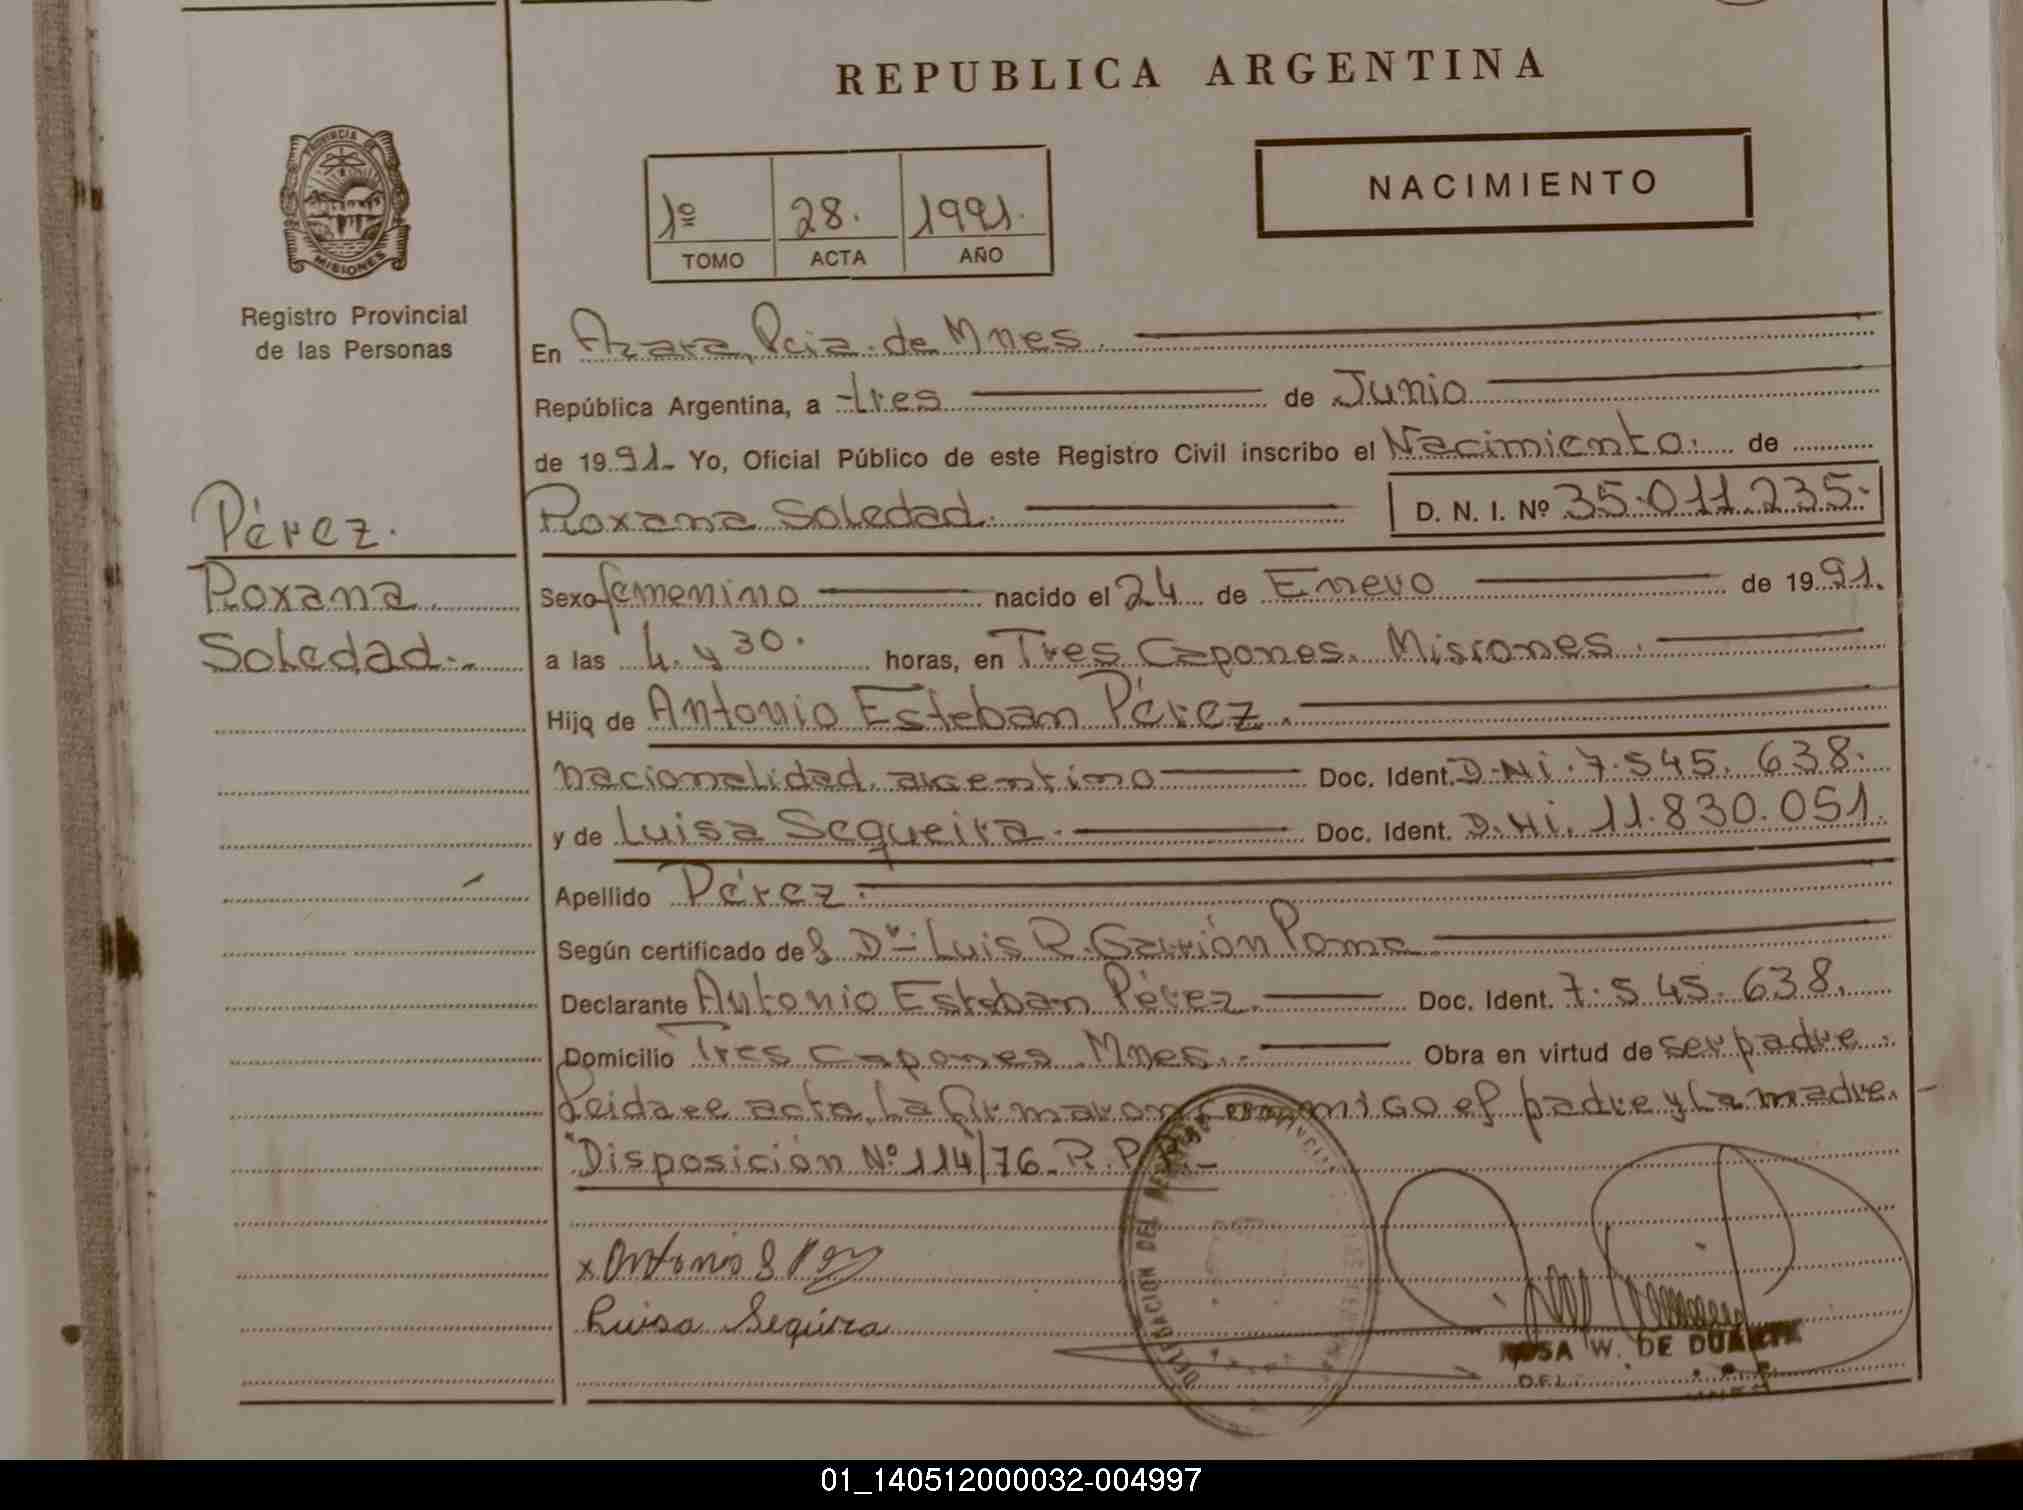 REPUBLICA ARGENTINA
PROVINCIA DE
MISIONES
Registro Provincial
de las Personas
1º 28. 1991.
TOMO ACTA AÑO
NACIMIENTO
En Azara, Pcia. de Mnes.
República Argentina, a tres de Junio
de 1991. Yo, Oficial Público de este Registro Civil inscribo el Nacimiento. de
Roxana Soledad. D. N. I. Nº 35.011.235.
Pérez.
Roxana
Soledad.
Sexo femenino nacido el 24 de Enero de 1991.
a las 4 y 30. horas, en Tres Capones. Misiones.
Hija de Antonio Esteban Pérez.
nacionalidad argentino Doc. Ident. D.Ni. 7.545.638.
y de Luisa Sequeira. Doc. Ident. D.Ni. 11.830.051.
Apellido Pérez.
Según certificado de Dr. Luis R. Garrión Poma
Declarante Antonio Esteban Pérez. Doc. Ident. 7.545.638.
Domicilio Tres Capones. Mnes. Obra en virtud de ser padre.
Leida el acta, la firmaron conmigo el padre y la madre.
"Disposición Nº 114/76 R.P.P.
x Antonio E P
Luisa Sequira
DELEGACIÓN DEL
ROSA W. DE DUARTE
DEL
01_140512000032-004997